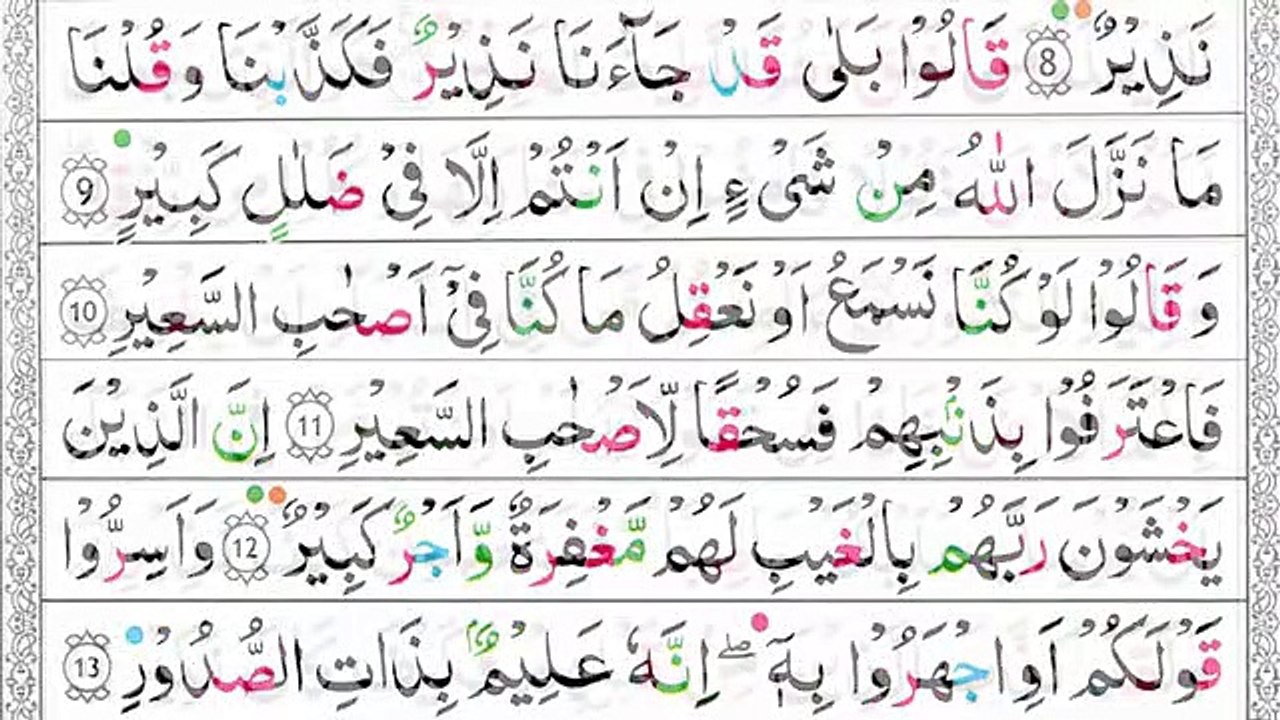 نَذِيْرٌ ۝8 قَالُوْا بَلٰى قَدْ جَآءَنَا نَذِيْرٌ فَكَذَّبْنَا وَقُلْنَا
مَا نَزَّلَ اللّٰهُ مِنْ شَىْءٍ اِنْ اَنْتُمْ اِلَّا فِىْ ضَلٰلٍ كَبِيْرٍ ۝9
وَقَالُوْا لَوْ كُنَّا نَسْمَعُ اَوْ نَعْقِلُ مَا كُنَّا فِىْٓ اَصْحٰبِ السَّعِيْرِ ۝10
فَاعْتَرَفُوْا بِذَنْۢبِهِمْ فَسُحْقًا لِّاَصْحٰبِ السَّعِيْرِ ۝11 اِنَّ الَّذِيْنَ
يَخْشَوْنَ رَبَّهُمْ بِالْغَيْبِ لَهُمْ مَّغْفِرَةٌ وَّاَجْرٌ كَبِيْرٌ ۝12 وَاَسِرُّوْا
قَوْلَكُمْ اَوِاجْهَرُوْا بِهٖۤ ؕ اِنَّهٗ عَلِيْمٌۢ بِذَاتِ الصُّدُوْرِ ۝13